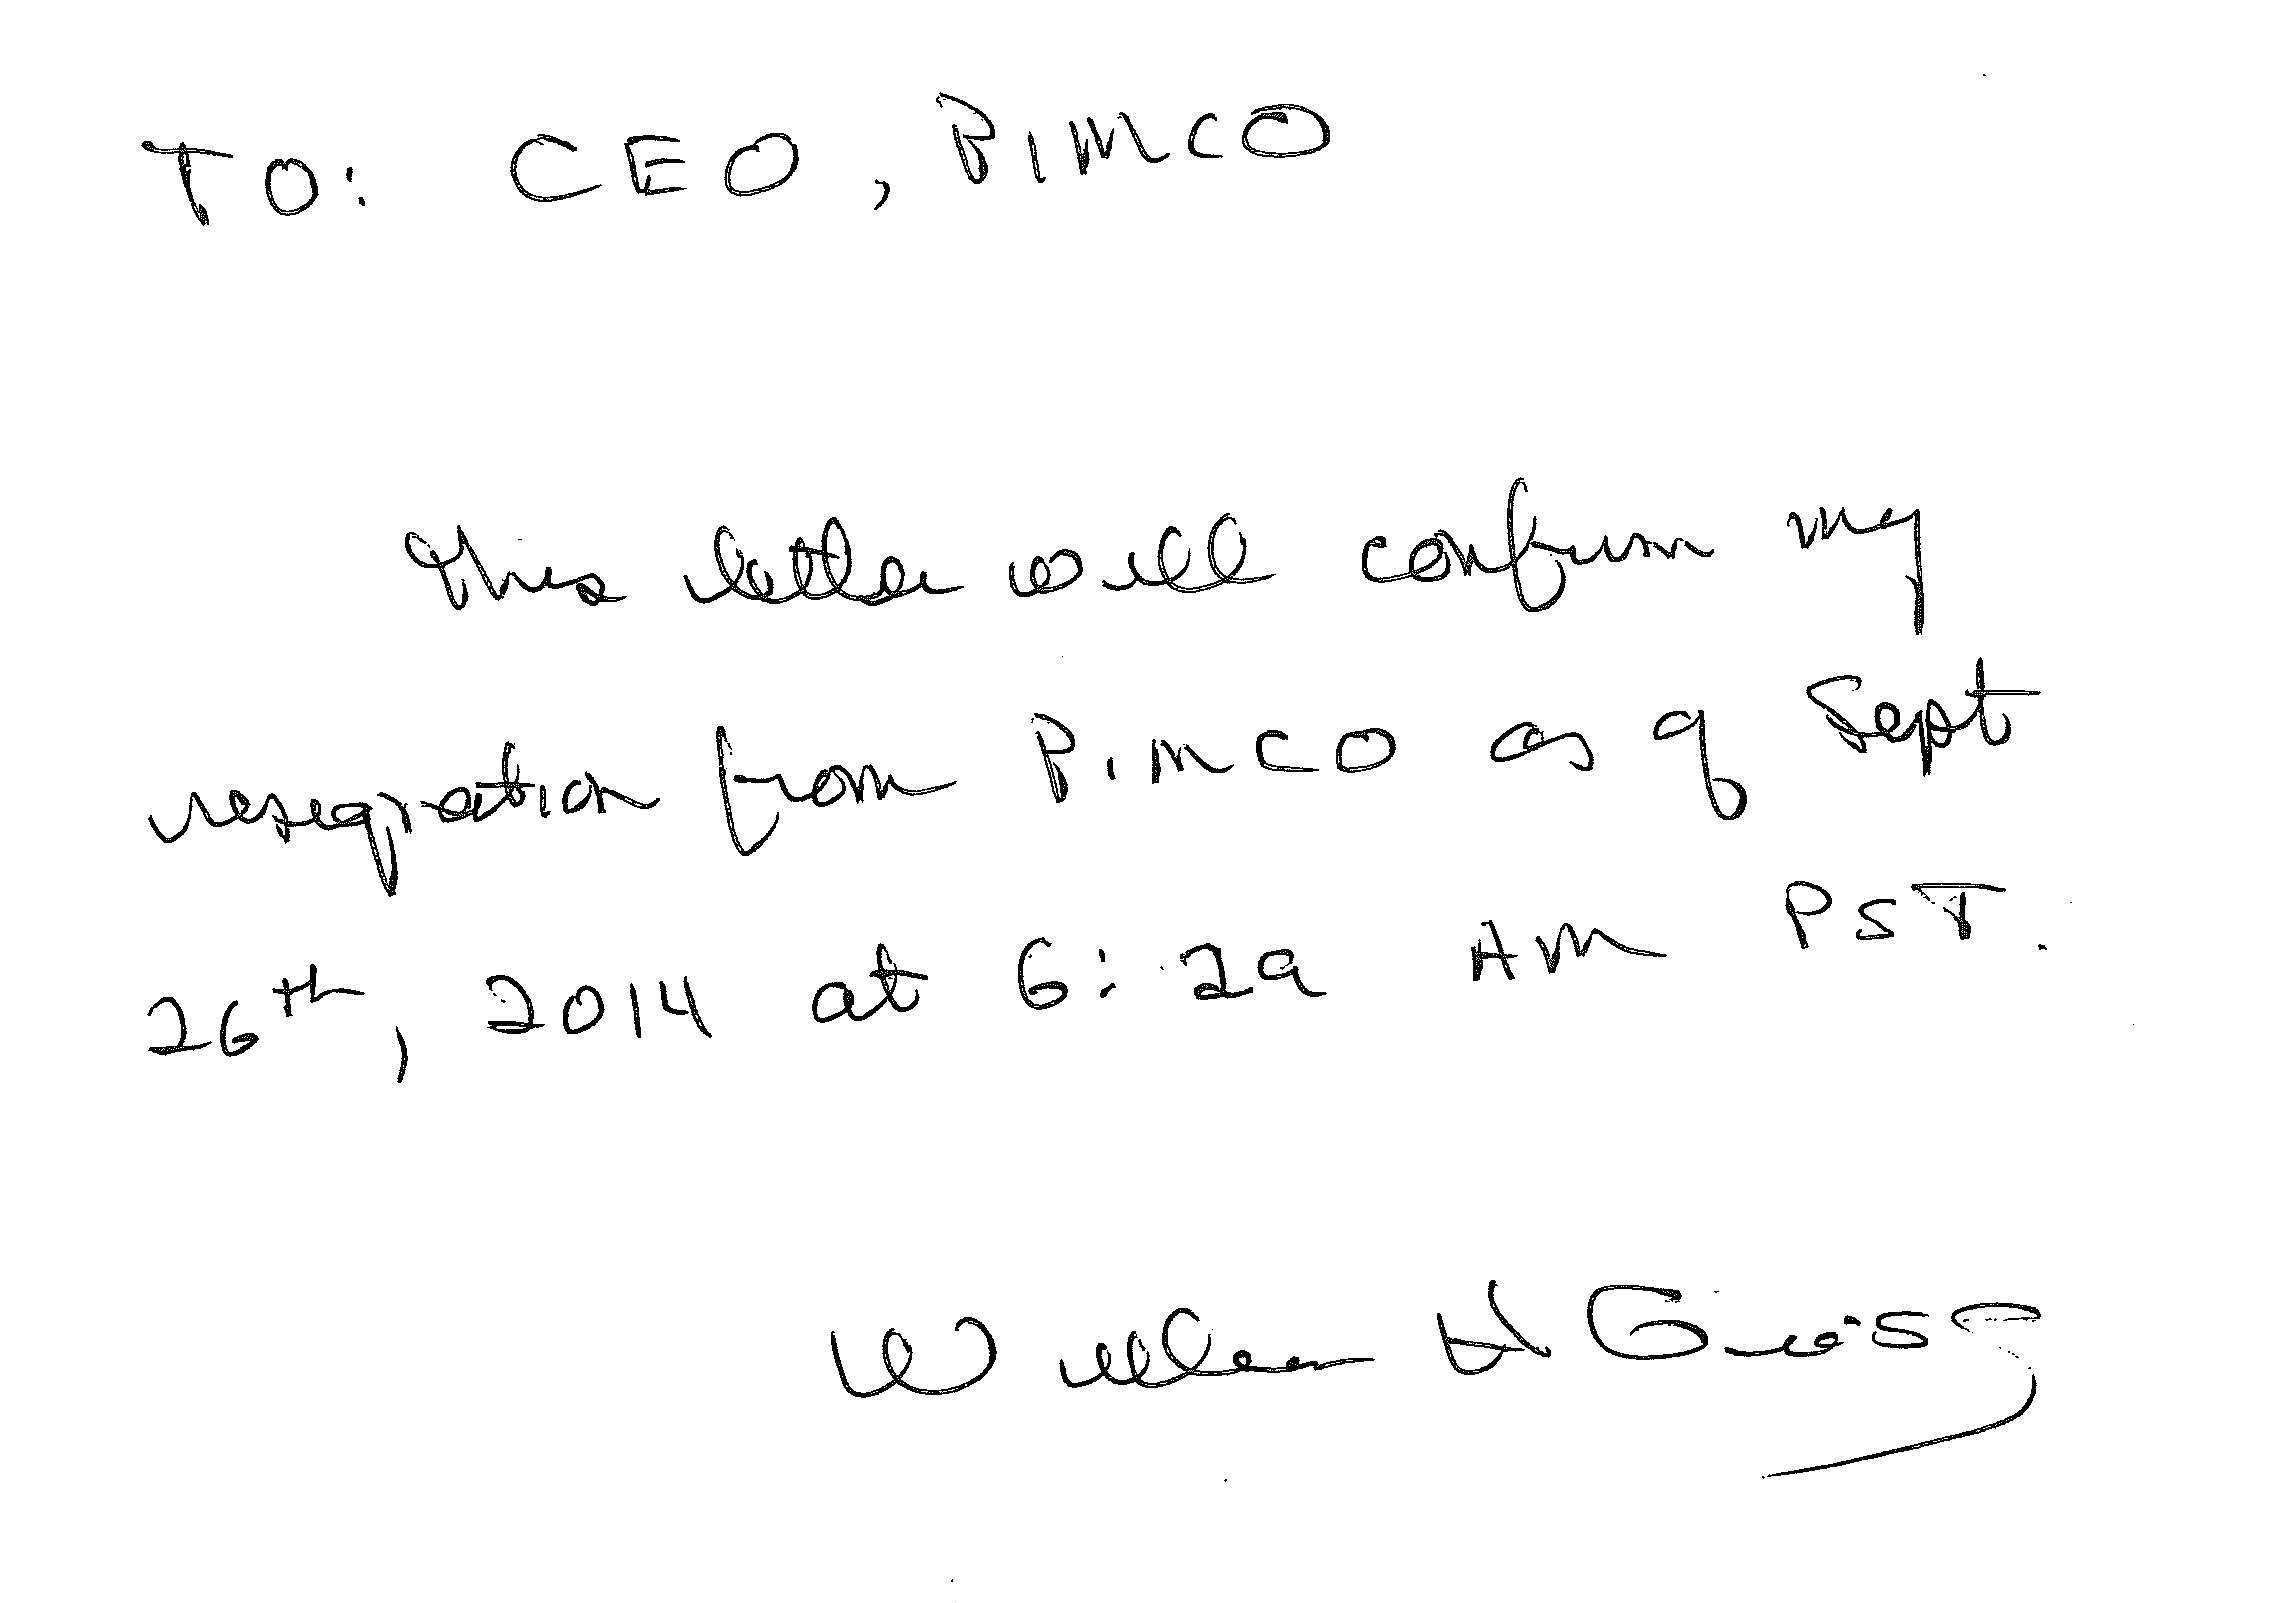 TO: CEO, PIMCO
This letter will confirm my
resignation from PIMCO as of Sept
26th, 2014 at 6:29 AM PST.
William H Gross